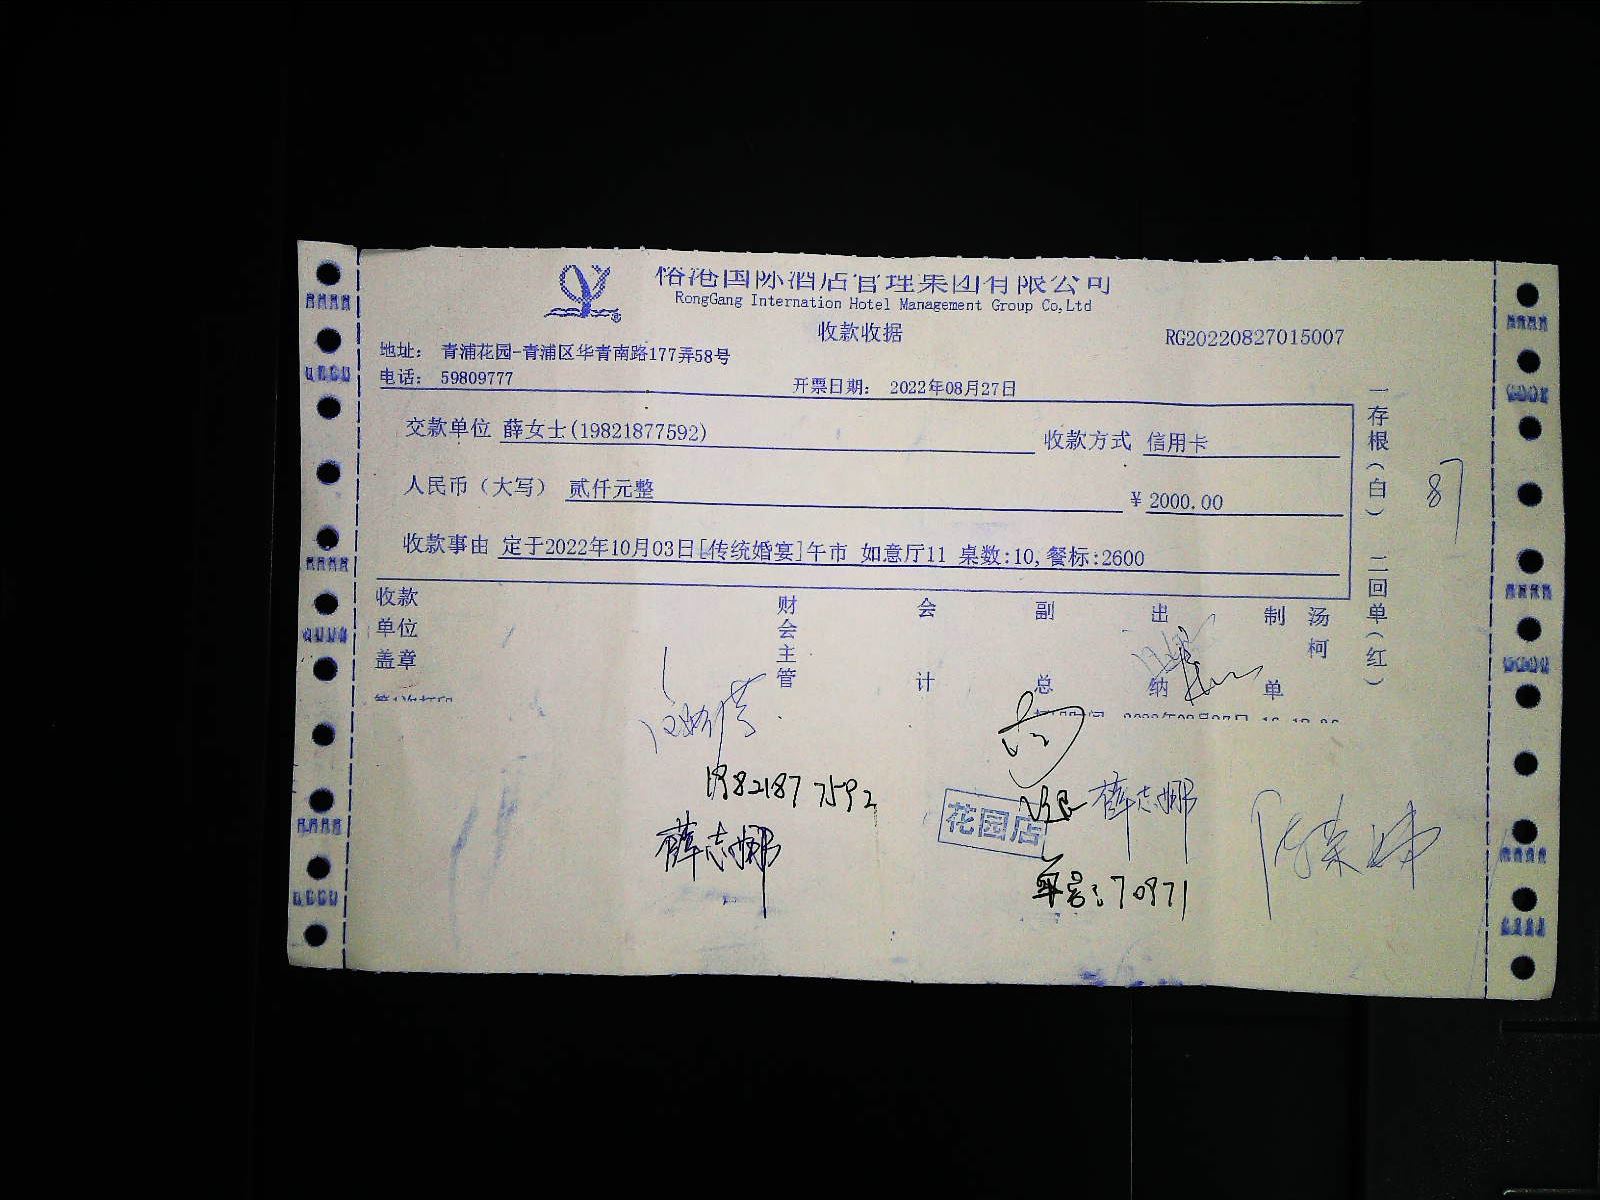 国际酒店管理集团有限公司
RongGang Internation Hotel Management Group Co,Ltd
收款收据
RG20220827015007
地址： 青浦花园-青浦区华青南路177弄58号
电话： 59809777
开票日期： 2022年08月27日
交款单位 薛女士(19821877592) 收款方式 信用卡
人民币（大写） 贰仟元整 ¥ 2000.00
收款事由 定于2022年10月03日[传统婚宴]午市 如意厅11 桌数:10,餐标:2600
一存根(白) 二回单(红)
87
收款单位盖章 财会主管 会计 副总 出纳 制单 汤柯
19821877592
薛志娜
花园店
薛志娜
单号:70971